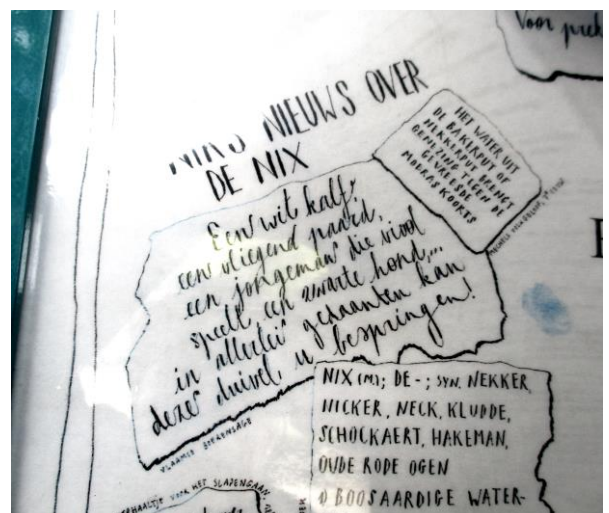 Voor
NIKS NIEUWS OVER
DE NIX
HET WATER UIT
DE BAKIRPUT OF
NEKKERPUT BRENGT
GENEZING TEGEN DE
GEVREESDE
MOERASKOORTS
Een wit kalf,
een vliegend paard,
een jongeman die viool
speelt, een zwarte hond,...
in allerlei gedaanten kan
deze duivel u bespringen!
VLAAMSE BOERENSAGE
NIX (M.); DE -; SYN. NEKKER,
NICKER, NECK, KLUDDE,
SCHOCKAERT, HAKEMAN,
OUDE RODE OGEN
BOOSAARDIGE WATER-
VOOR HET SLAPENGAAN